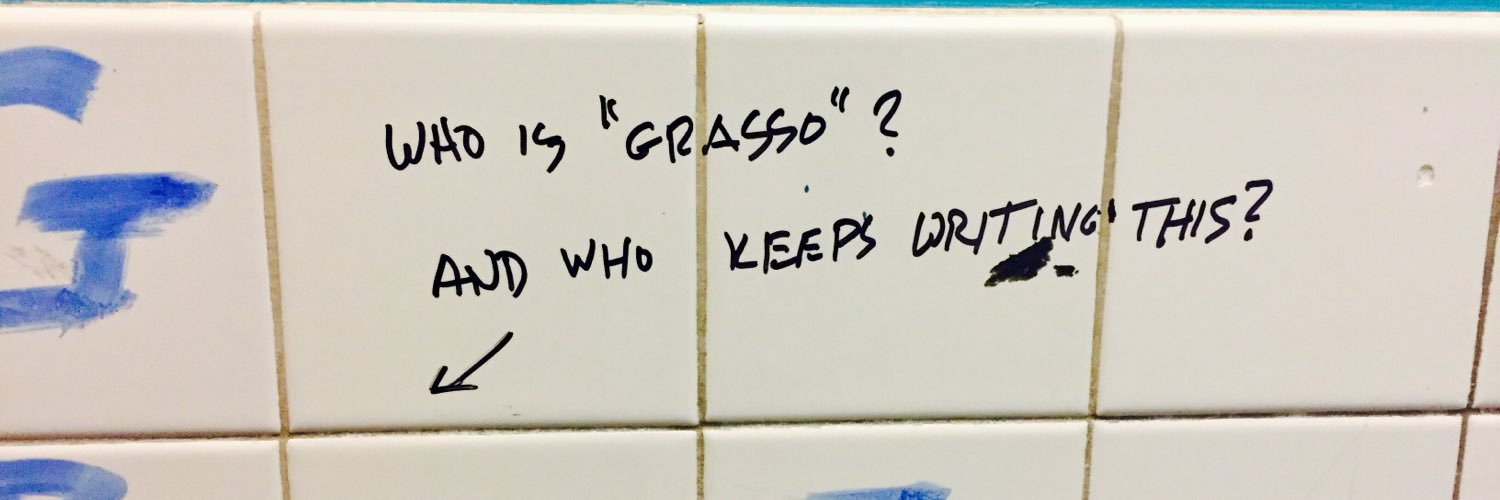 WHO IS "GRASSO"?
AND WHO KEEPS WRITING THIS?
G